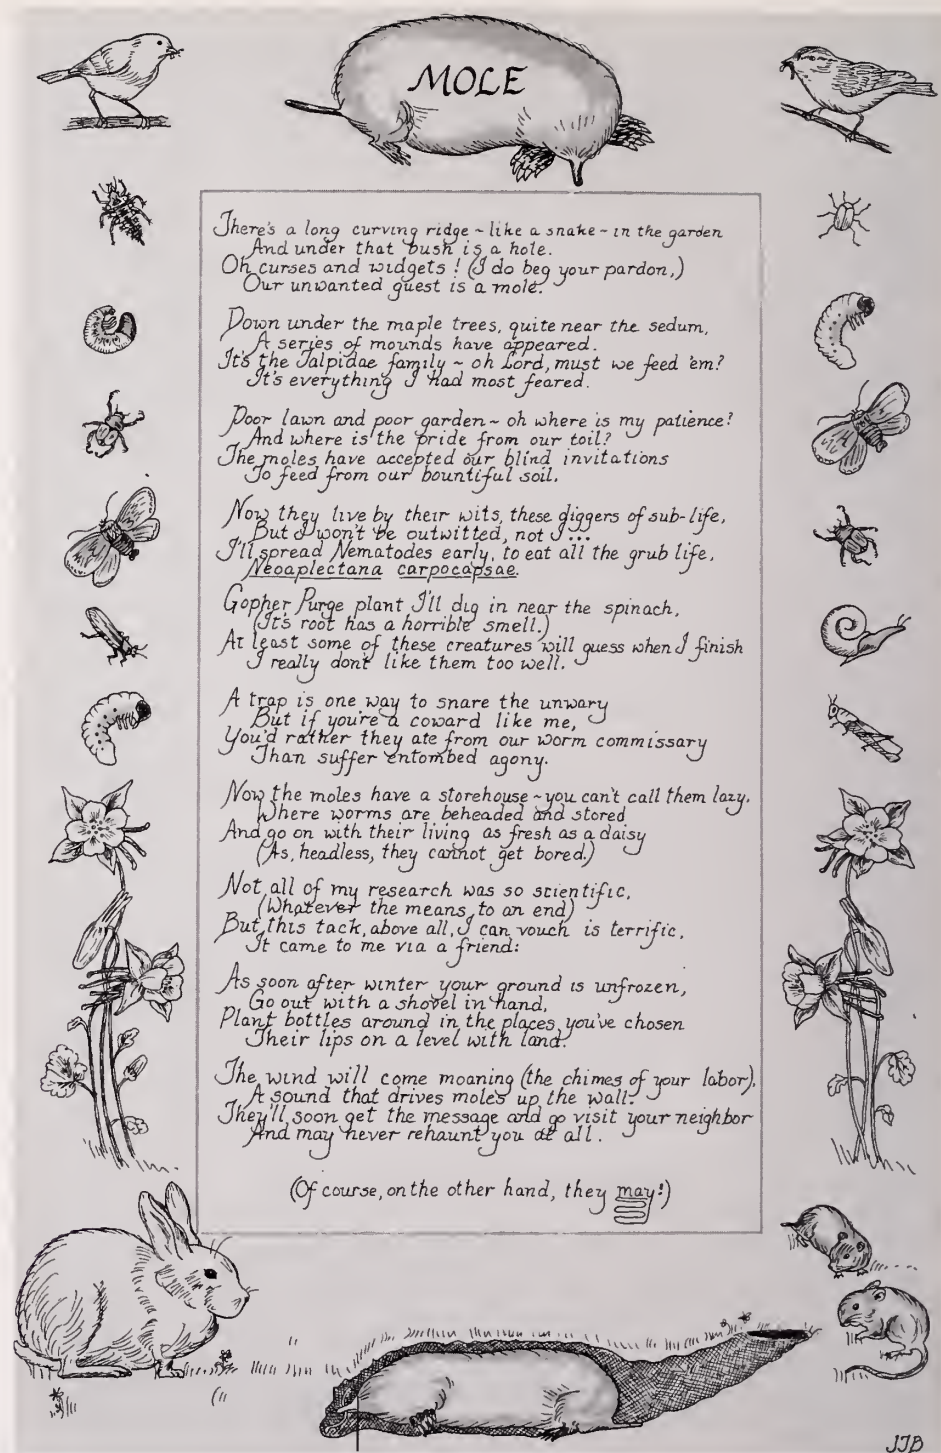 MOLE
There's a long curving ridge ~ like a snake ~ in the garden
And under that bush is a hole.
Oh curses and widgets! (I do beg your pardon,)
Our unwanted guest is a mole.
Down under the maple trees, quite near the sedum,
A series of mounds have appeared.
It's the Talpidae family ~ oh Lord, must we feed 'em?
It's everything I had most feared.
Poor lawn and poor garden ~ oh where is my patience?
And where is the pride from our toil?
The moles have accepted our blind invitations
To feed from our bountiful soil.
Now they live by their wits, these diggers of sub-life,
But I won't be outwitted, not I...
I'll spread Nematodes early, to eat all the grub life,
Neoaplectana carpocapsae.
Gopher Purge plant I'll dig in near the spinach,
(It's root has a horrible smell.)
At least some of these creatures will guess when I finish
I really don't like them too well.
A trap is one way to snare the unwary
But if you're a coward like me,
You'd rather they ate from our worm commissary
Than suffer entombed agony.
Now the moles have a storehouse ~ you can't call them lazy,
Where worms are beheaded and stored
And go on with their living as fresh as a daisy
(As, headless, they cannot get bored.)
Not all of my research was so scientific,
(Whatever the means, to an end)
But this tack, above all, I can vouch is terrific,
It came to me via a friend:
As soon after winter your ground is unfrozen,
Go out with a shovel in hand,
Plant bottles around in the places you've chosen
Their lips on a level with land.
The wind will come moaning (the chimes of your labor),
A sound that drives moles up the wall.
They'll soon get the message and go visit your neighbor
And may never rehaunt you at all.
(Of course, on the other hand, they may!)
JTB